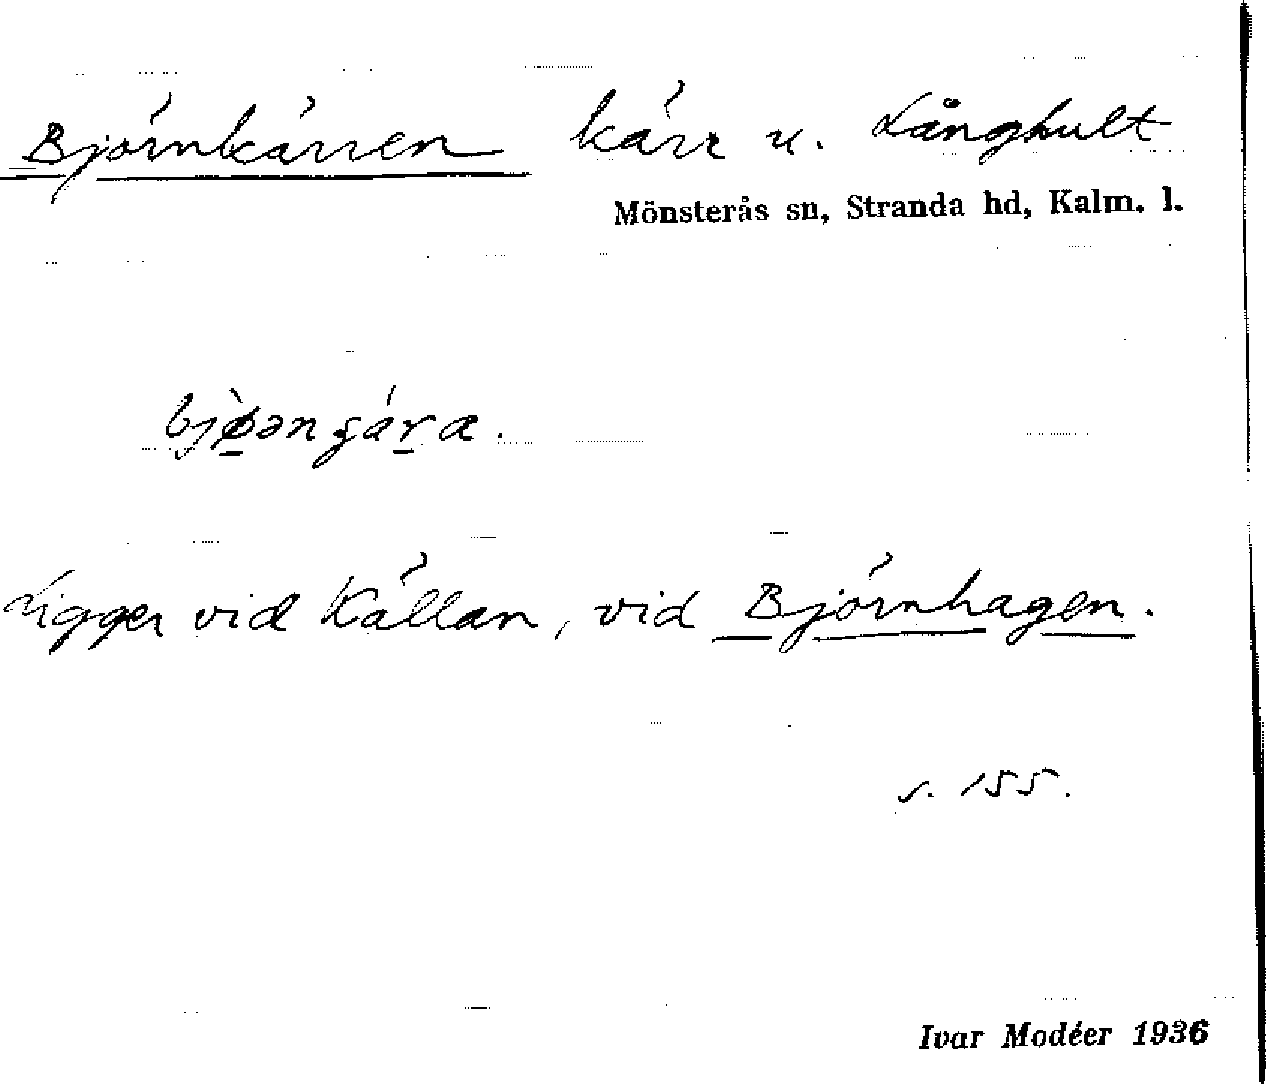 Björnkärren kärr u. Långhult
Mönsterås sn, Stranda hd, Kalm. l.
Ligger vid Källan, vid Björnhagen.
s. 155.
Ivar Modéer 1936